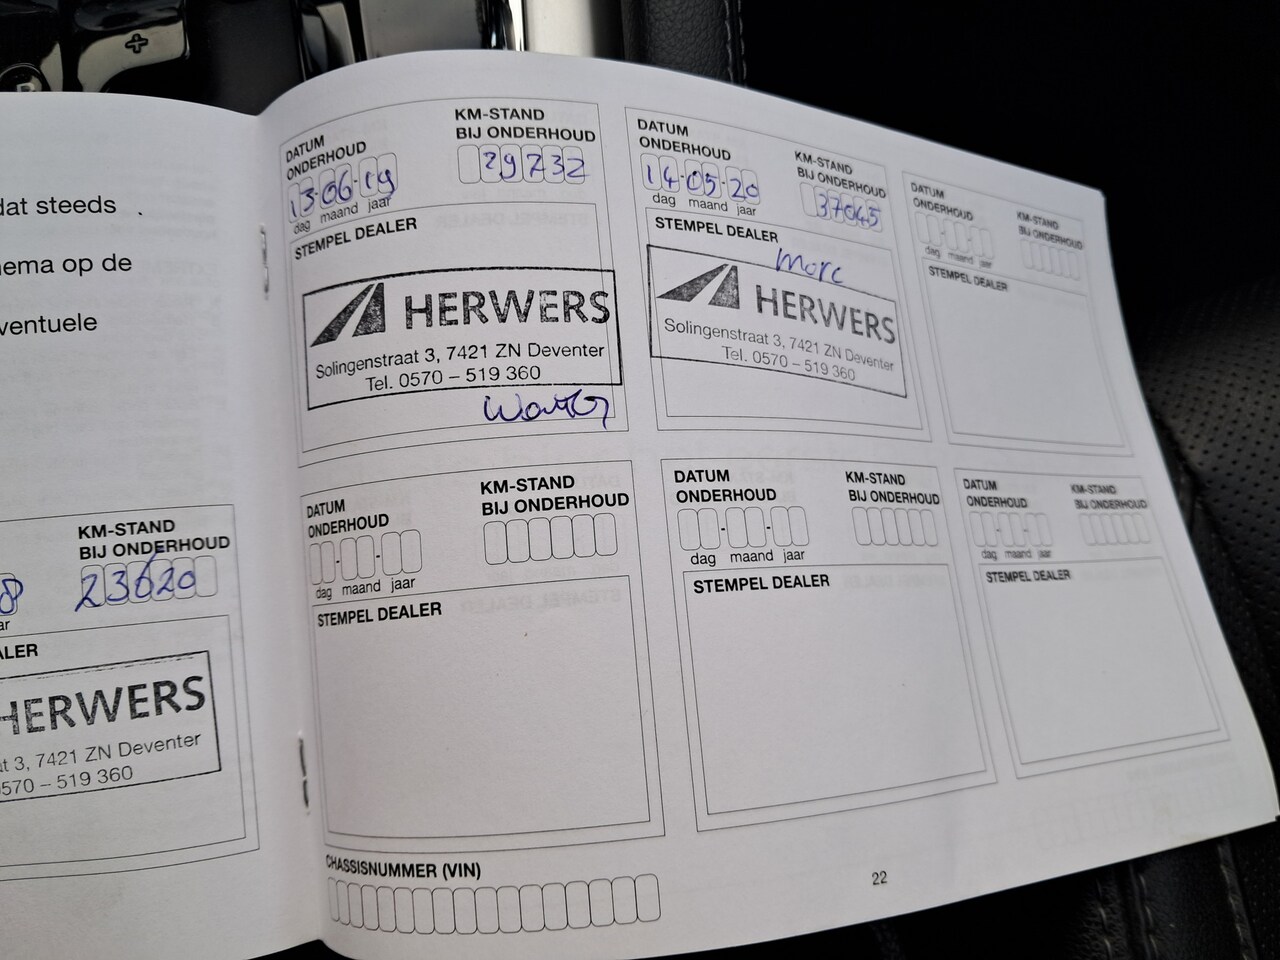 dat steeds
hema op de
ventuele
KM-STAND
BIJ ONDERHOUD
8
23620
ar
ALER
HERWERS
at 3, 7421 ZN Deventer
570 – 519 360
DATUM
ONDERHOUD
KM-STAND
BIJ ONDERHOUD
13-06-19
29732
dag maand jaar
STEMPEL DEALER
HERWERS
Solingenstraat 3, 7421 ZN Deventer
Tel. 0570 – 519 360
DATUM
ONDERHOUD
KM-STAND
BIJ ONDERHOUD
14-05-20
37045
dag maand jaar
STEMPEL DEALER
HERWERS
Solingenstraat 3, 7421 ZN Deventer
Tel. 0570 – 519 360
DATUM
ONDERHOUD
KM-STAND
BIJ ONDERHOUD
dag maand jaar
STEMPEL DEALER
DATUM
ONDERHOUD
KM-STAND
BIJ ONDERHOUD
dag maand jaar
STEMPEL DEALER
DATUM
ONDERHOUD
KM-STAND
BIJ ONDERHOUD
dag maand jaar
STEMPEL DEALER
DATUM
ONDERHOUD
KM-STAND
BIJ ONDERHOUD
dag maand jaar
STEMPEL DEALER
CHASSISNUMMER (VIN)
22